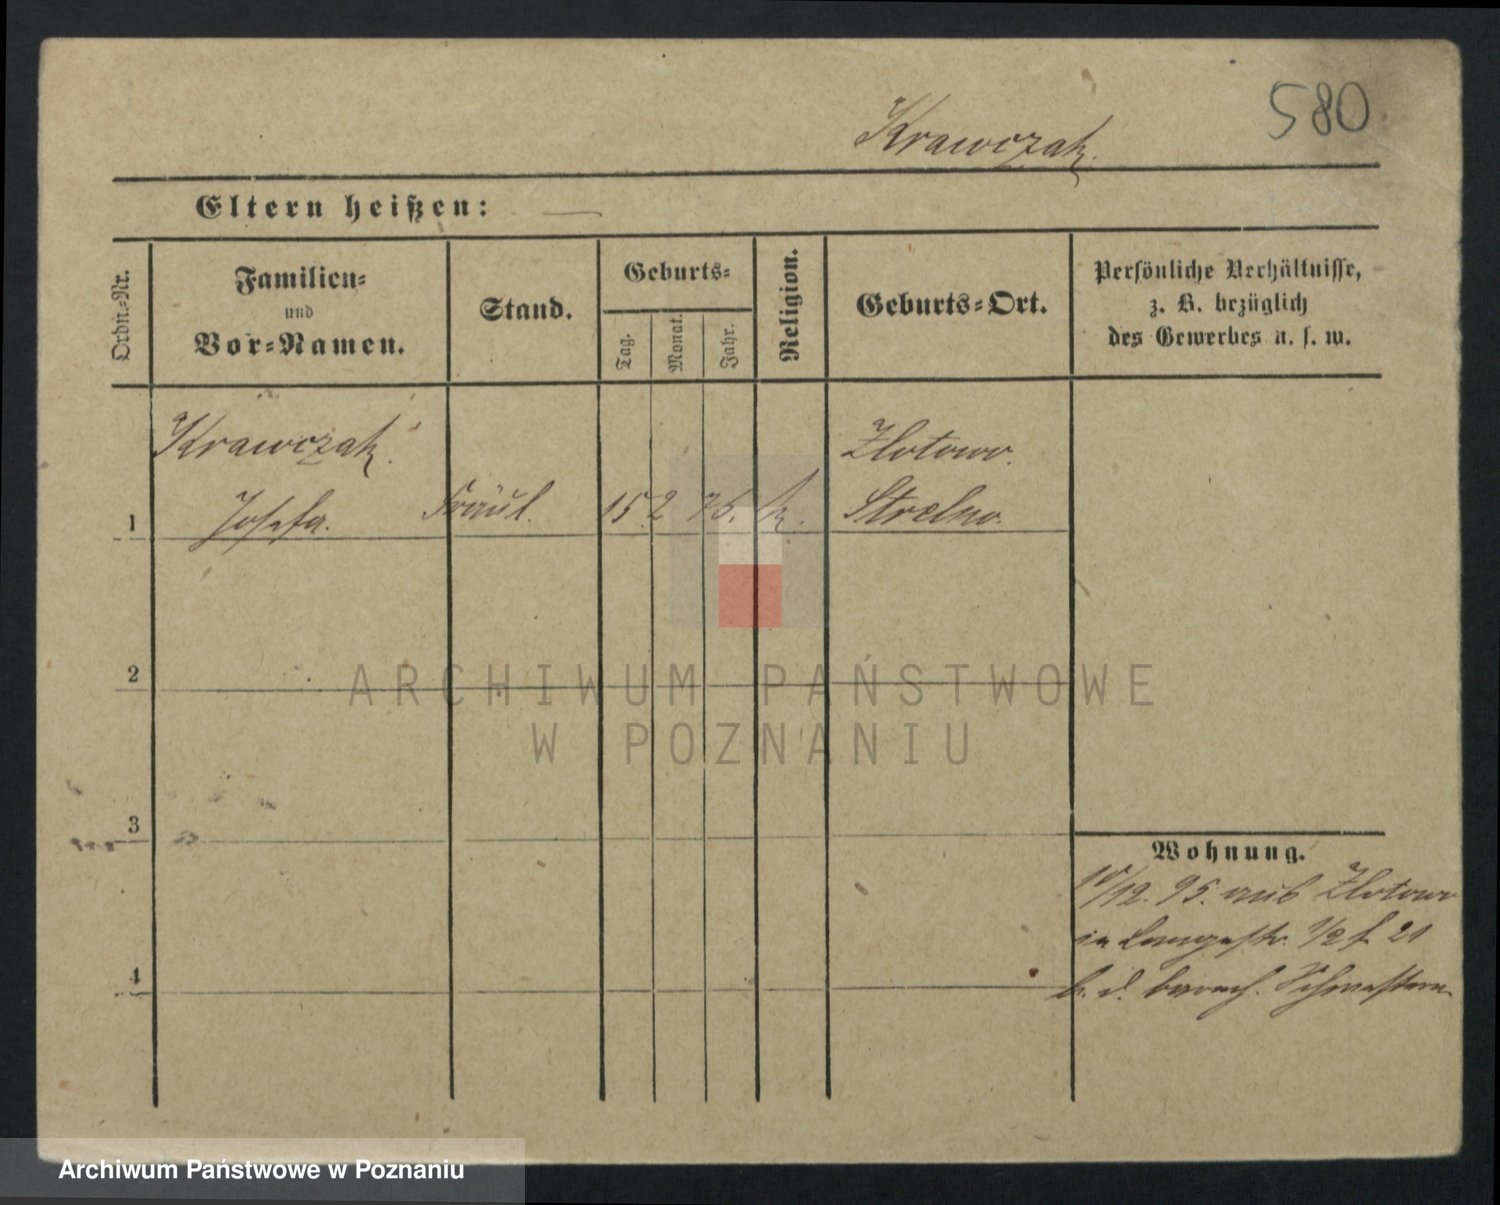 580
Krawczak.
Eltern heißen: —
Ordn.-Nr.
Familien-
und
Vor-Namen.
Stand.
Geburts-
Tag.
Monat.
Jahr.
Religion.
Geburts-Ort.
Persönliche Verhältnisse,
z. B. bezüglich
des Gewerbes u. s. w.
Krawczak.
Zlotowo.
1 Josefa. Fräul. 15. 2 76. k. Strelno.
2
3
4
Wohnung.
/12. 95. aus Zlotowo
in Langestr. 21
b. d. barmh. Schwestern
ARCHIWUM PAŃSTWOWE
W POZNANIU
Archiwum Państwowe w Poznaniu